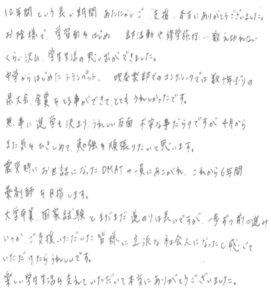 12年間という長い期間 あたたかいご支援、本当にありがとうございました。
お陰様で、学習面をはじめ 部活動や修学旅行…数えきれない
くらい沢山、学生生活の思い出ができました。
中学からはじめたトランペット、吹奏楽部でのコンクールでは数十年ぶりの
県大会、金賞をとる事ができて、とてもうれしかったです。
無事に進学も決まり、うれしい反面、不安な事だらけですが、4月から
また気をひきしめて、勉強を頑張りたいと思います。
震災時にお世話になったDMATの一員にあこがれ、これから6年間
薬剤師を目指します。
大学卒業、国家試験とまだまだ道のりは長いですが、一歩ずつ前に進み
いつか ご支援いただいた皆様に、立派な社会人になったと感じて
いただけたらうれしいです。
楽しい学生生活を支えていただいて本当にありがとうございました。